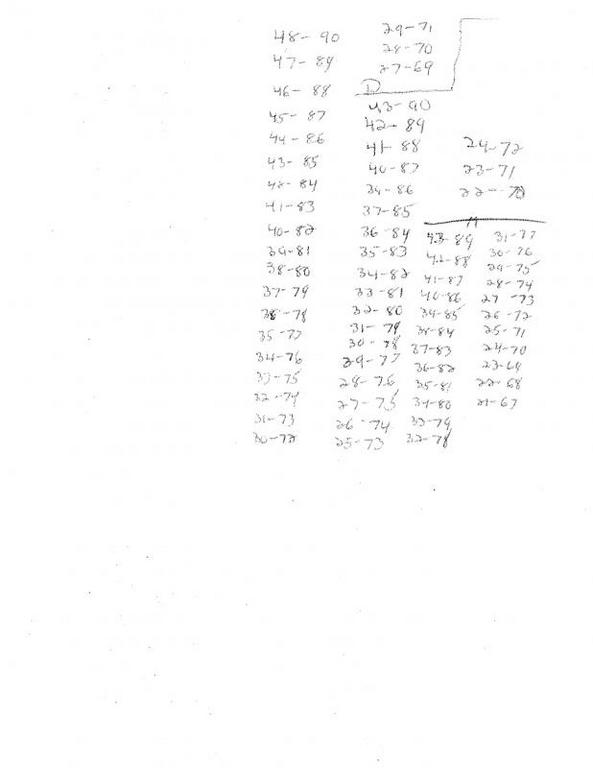 48-90
47-89
46-88
45-87
44-86
43-85
42-84
41-83
40-82
39-81
38-80
37-79
36-78
35-77
34-76
33-75
32-74
31-73
30-72
29-71
28-70
27-69
D
43-90
42-89
41-88
40-87
39-86
37-85
36-84
35-83
34-82
33-81
32-80
31-79
30-78
29-77
28-76
27-75
26-74
25-73
24-72
23-71
22-70
43-89
42-88
41-87
40-86
39-85
38-84
37-83
36-82
35-81
34-80
33-79
32-78
31-77
30-76
29-75
28-74
27-73
26-72
25-71
24-70
23-69
22-68
21-67